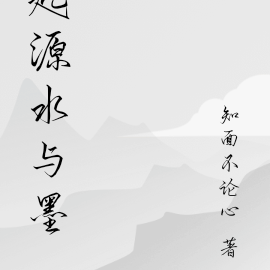 起源水与墨
知面不论心 著